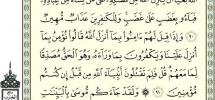 فَبَآءُو بِغَضَبٍ عَلَىٰ غَضَبٍ وَلِلْكَٰفِرِينَ عَذَابٌ مُّهِينٌ
٩٠ وَإِذَا قِيلَ لَهُمْ ءَامِنُوا۟ بِمَآ أَنزَلَ ٱللَّهُ قَالُوا۟ نُؤْمِنُ بِمَآ
أُنزِلَ عَلَيْنَا وَيَكْفُرُونَ بِمَا وَرَآءَهُۥ وَهُوَ ٱلْحَقُّ مُصَدِّقًا
لِّمَا مَعَهُمْ قُلْ فَلِمَ تَقْتُلُونَ أَنۢبِيَآءَ ٱللَّهِ مِن قَبْلُ إِن كُنتُم
مُّؤْمِنِينَ ٩١ ۞ وَلَقَدْ جَآءَكُم مُّوسَىٰ بِٱلْبَيِّنَٰتِ